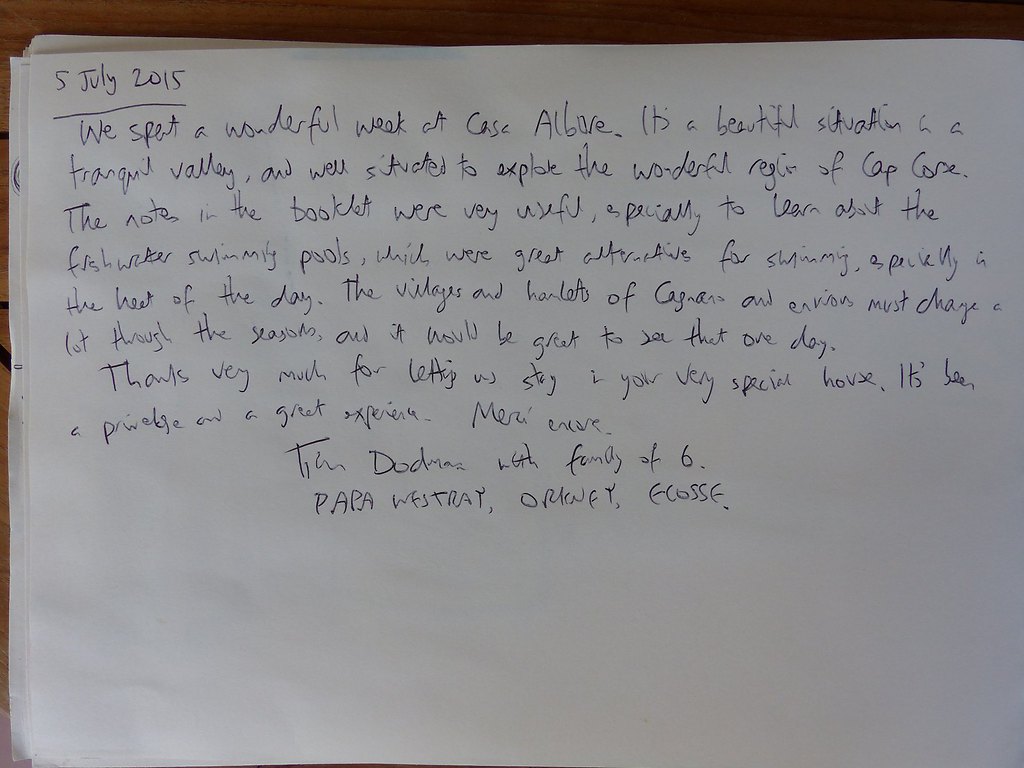 5 July 2015
We spent a wonderful week at Casa Albore. It's a beautiful situation in a
tranquil valley, and well situated to explore the wonderful region of Cap Corse.
The notes in the booklet were very useful, especially to learn about the
freshwater swimming pools, which were great alternatives for swimming, especially in
the heat of the day. The villages and hamlets of Cagnano and environs must change a
lot through the seasons, and it would be great to see that one day.
Thanks very much for letting us stay in your very special house. It's been
a privilege and a great experience. Merci encore.
Tim Dodman with family of 6.
PAPA WESTRAY, ORKNEY, ECOSSE.